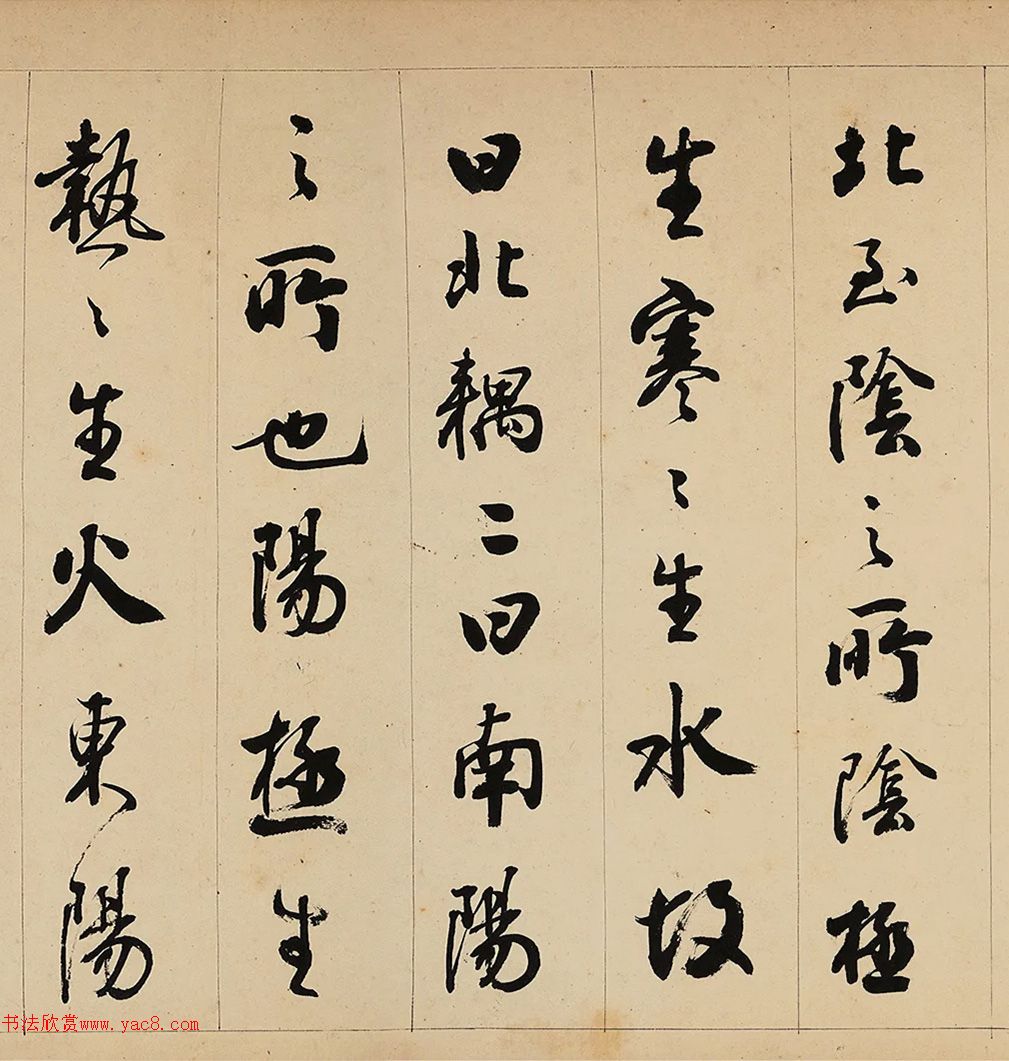 北至陰之所陰極
生寒〻生水故
曰北耦二曰南陽
之所也陽極生
熱〻生火東陽
书法欣赏www.yac8.com